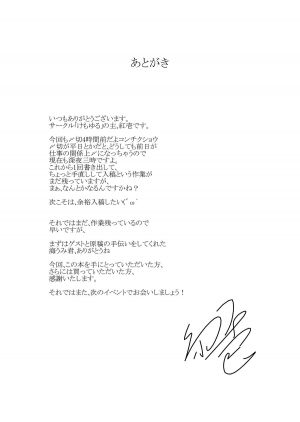 あとがき
いつもありがとうございます。
サークル「けもゆる」の主、紅壱です。
今回も〆切4時間前だよコンチクショウ
〆切が平日とかだと、どうしても前日が
仕事の関係上〆になっちゃうので
現在も深夜三時ですよ。
これから1回書き出して、
ちょっと手直しして入稿という作業が
まだ残っていますが、
まぁ、なんとかなるんですかね？
次こそは、余裕入稿したい(´ω`
それではまだ、作業残っているので
早いですが、
まずはゲストと原稿の手伝いをしてくれた
海うみ君、ありがとうね
今回、この本を手にとっていただいた方、
さらには買っていただいた方、
感謝いたします。
それではまた、次のイベントでお会いしましょう！
紅壱